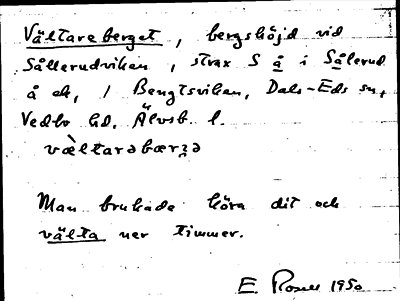 Vältareberget, bergshöjd vid
Sållerudviken, strax S å i Sålerud
å ek, / Bengtsviken, Dals-Eds sn,
Vedbo hd. Älvsb. l.
vä̀ltarəbærʒə
Man brukade köra dit och
välta ner timmer.
E Rosell 1950